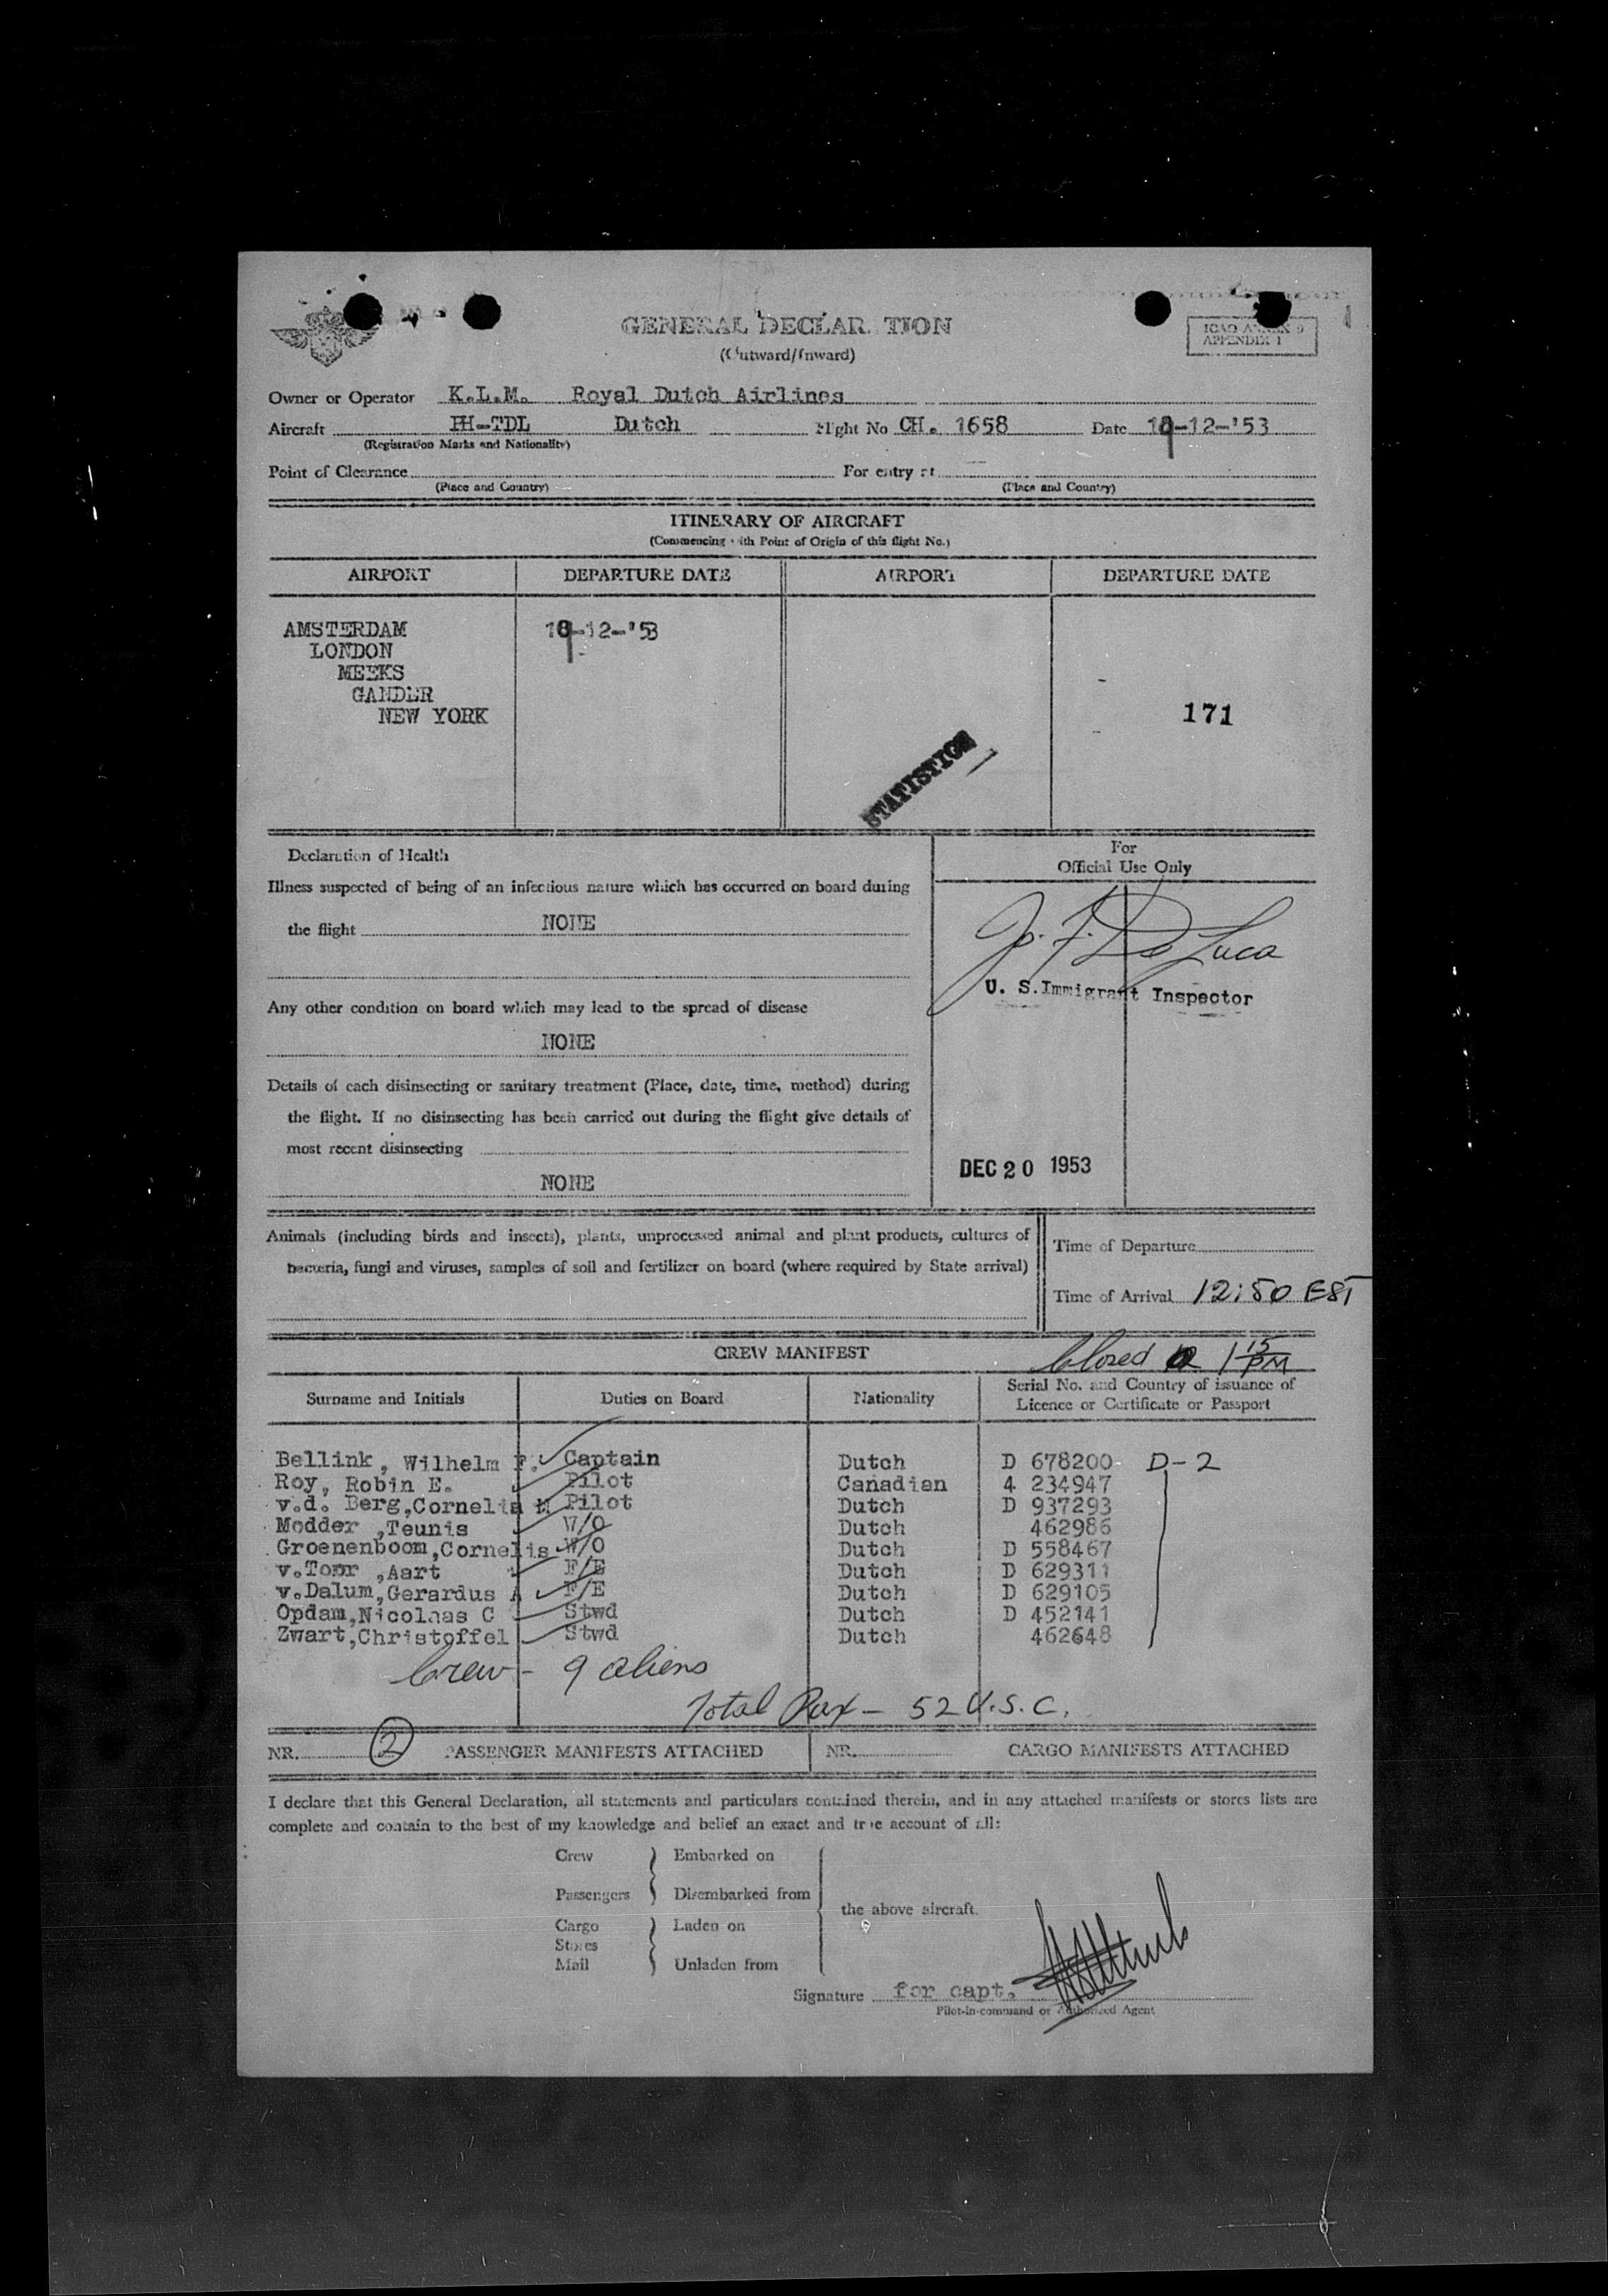 GENERAL DECLAR TION
(Outward/Inward)
ICAO ANNEX 9
APPENDIX 1
Owner or Operator K.L.M. Royal Dutch Airlines
Aircraft PH-TDL Dutch Flight No CH. 1658 Date 19-12-'53
(Registration Marks and Nationality)
Point of Clearance For entry at
(Place and Country) (Place and Country)
ITINERARY OF AIRCRAFT
(Commencing with Point of Origin of this flight No.)
AIRPORT DEPARTURE DATE AIRPORT DEPARTURE DATE
AMSTERDAM 19-12-'53
LONDON
MEEKS
GANDER
NEW YORK 171
STATISTICS
Declaration of Health For
Official Use Only
Illness suspected of being of an infectious nature which has occurred on board during
the flight NONE
J. F. De Luca
U. S. Immigrant Inspector
Any other condition on board which may lead to the spread of disease
NONE
Details of each disinsecting or sanitary treatment (Place, date, time, method) during
the flight. If no disinsecting has been carried out during the flight give details of
most recent disinsecting
DEC 20 1953
NONE
Animals (including birds and insects), plants, unprocessed animal and plant products, cultures of
bacteria, fungi and viruses, samples of soil and fertilizer on board (where required by State arrival)
Time of Departure
Time of Arrival 12:50 EST
CREW MANIFEST Closed 1 15 PM
Surname and Initials Duties on Board Nationality Serial No. and Country of issuance of
Licence or Certificate or Passport
Bellink, Wilhelm F. Captain Dutch D 678200 D-2
Roy, Robin E. Pilot Canadian 4 234947
v.d. Berg,Cornelis M Pilot Dutch D 937293
Modder ,Teunis W/O Dutch 462986
Groenenboom,Cornelis W/O Dutch D 558467
v.Toor ,Aart F/E Dutch D 629311
v.Dalum,Gerardus A F/E Dutch D 629105
Opdam,Nicolaas C Stwd Dutch D 452141
Zwart,Christoffel Stwd Dutch 462648
Crew - 9 aliens
Total Pax - 52 U.S.C.
NR. 2 PASSENGER MANIFESTS ATTACHED NR. CARGO MANIFESTS ATTACHED
I declare that this General Declaration, all statements and particulars contained therein, and in any attached manifests or stores lists are
complete and contain to the best of my knowledge and belief an exact and true account of all:
Crew Embarked on
Passengers Disembarked from
the above aircraft.
Cargo Laden on
Stores
Mail Unladen from
Signature for capt.
Pilot-in-command or Authorized Agent